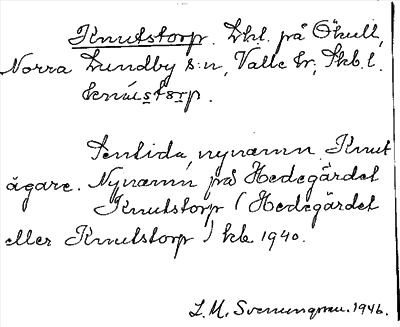 Knutstorp. Lhl. på Ökull,
Norra Lundby s:n, Valle hr, Skb. l.
knústsrp.
Sentida nynamn. Knut
ägare. Nynamn på Hedegärdet
Knutstorp (Hedegärdet
eller Knutstorp) kb 1940.
L. M. Svenungsson. 1946.